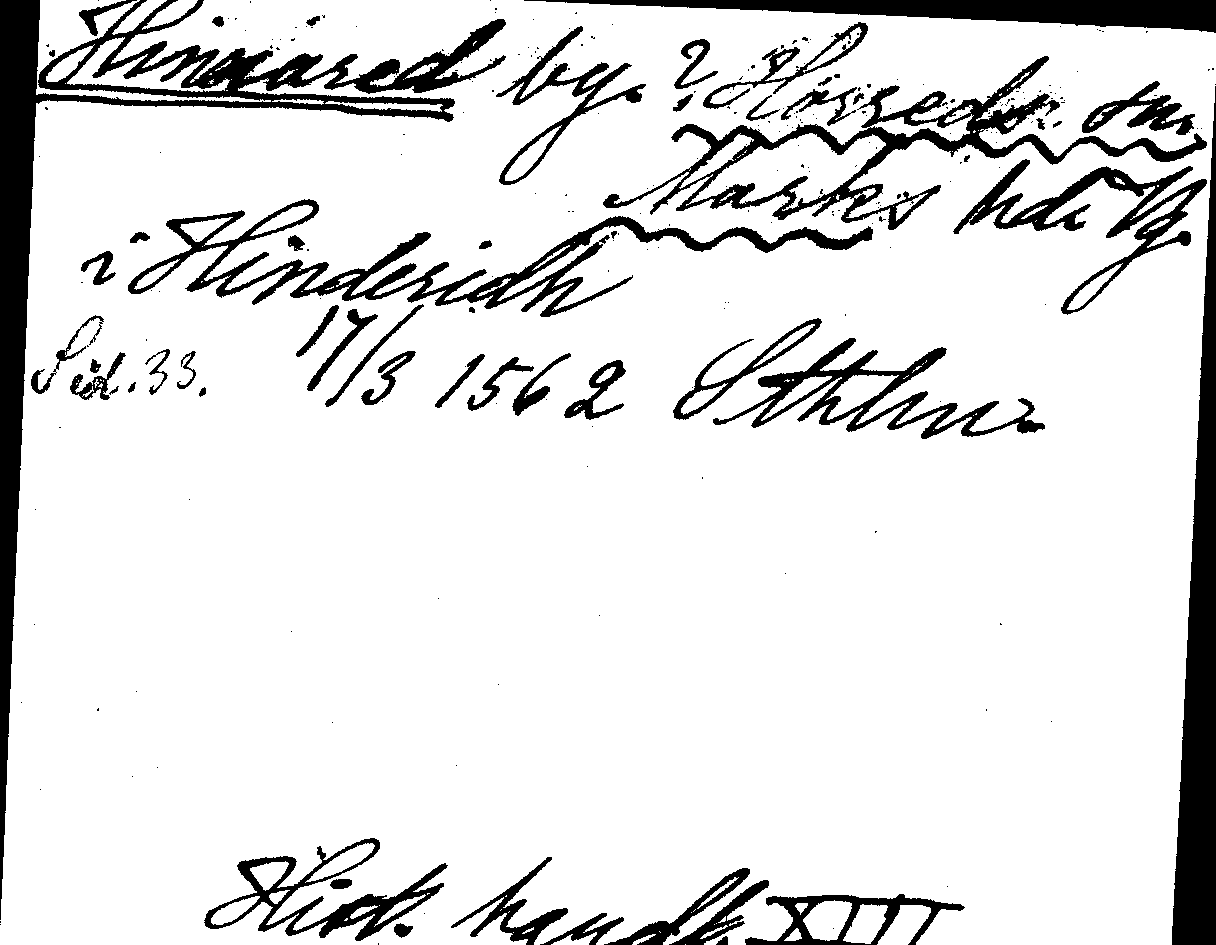 Hinnared by. ? Horreds sn.
Marks hd. Vg.
i Hinderidh
Sid. 33. 17/3 1562 Sthlm.
Hist. handl. XIII